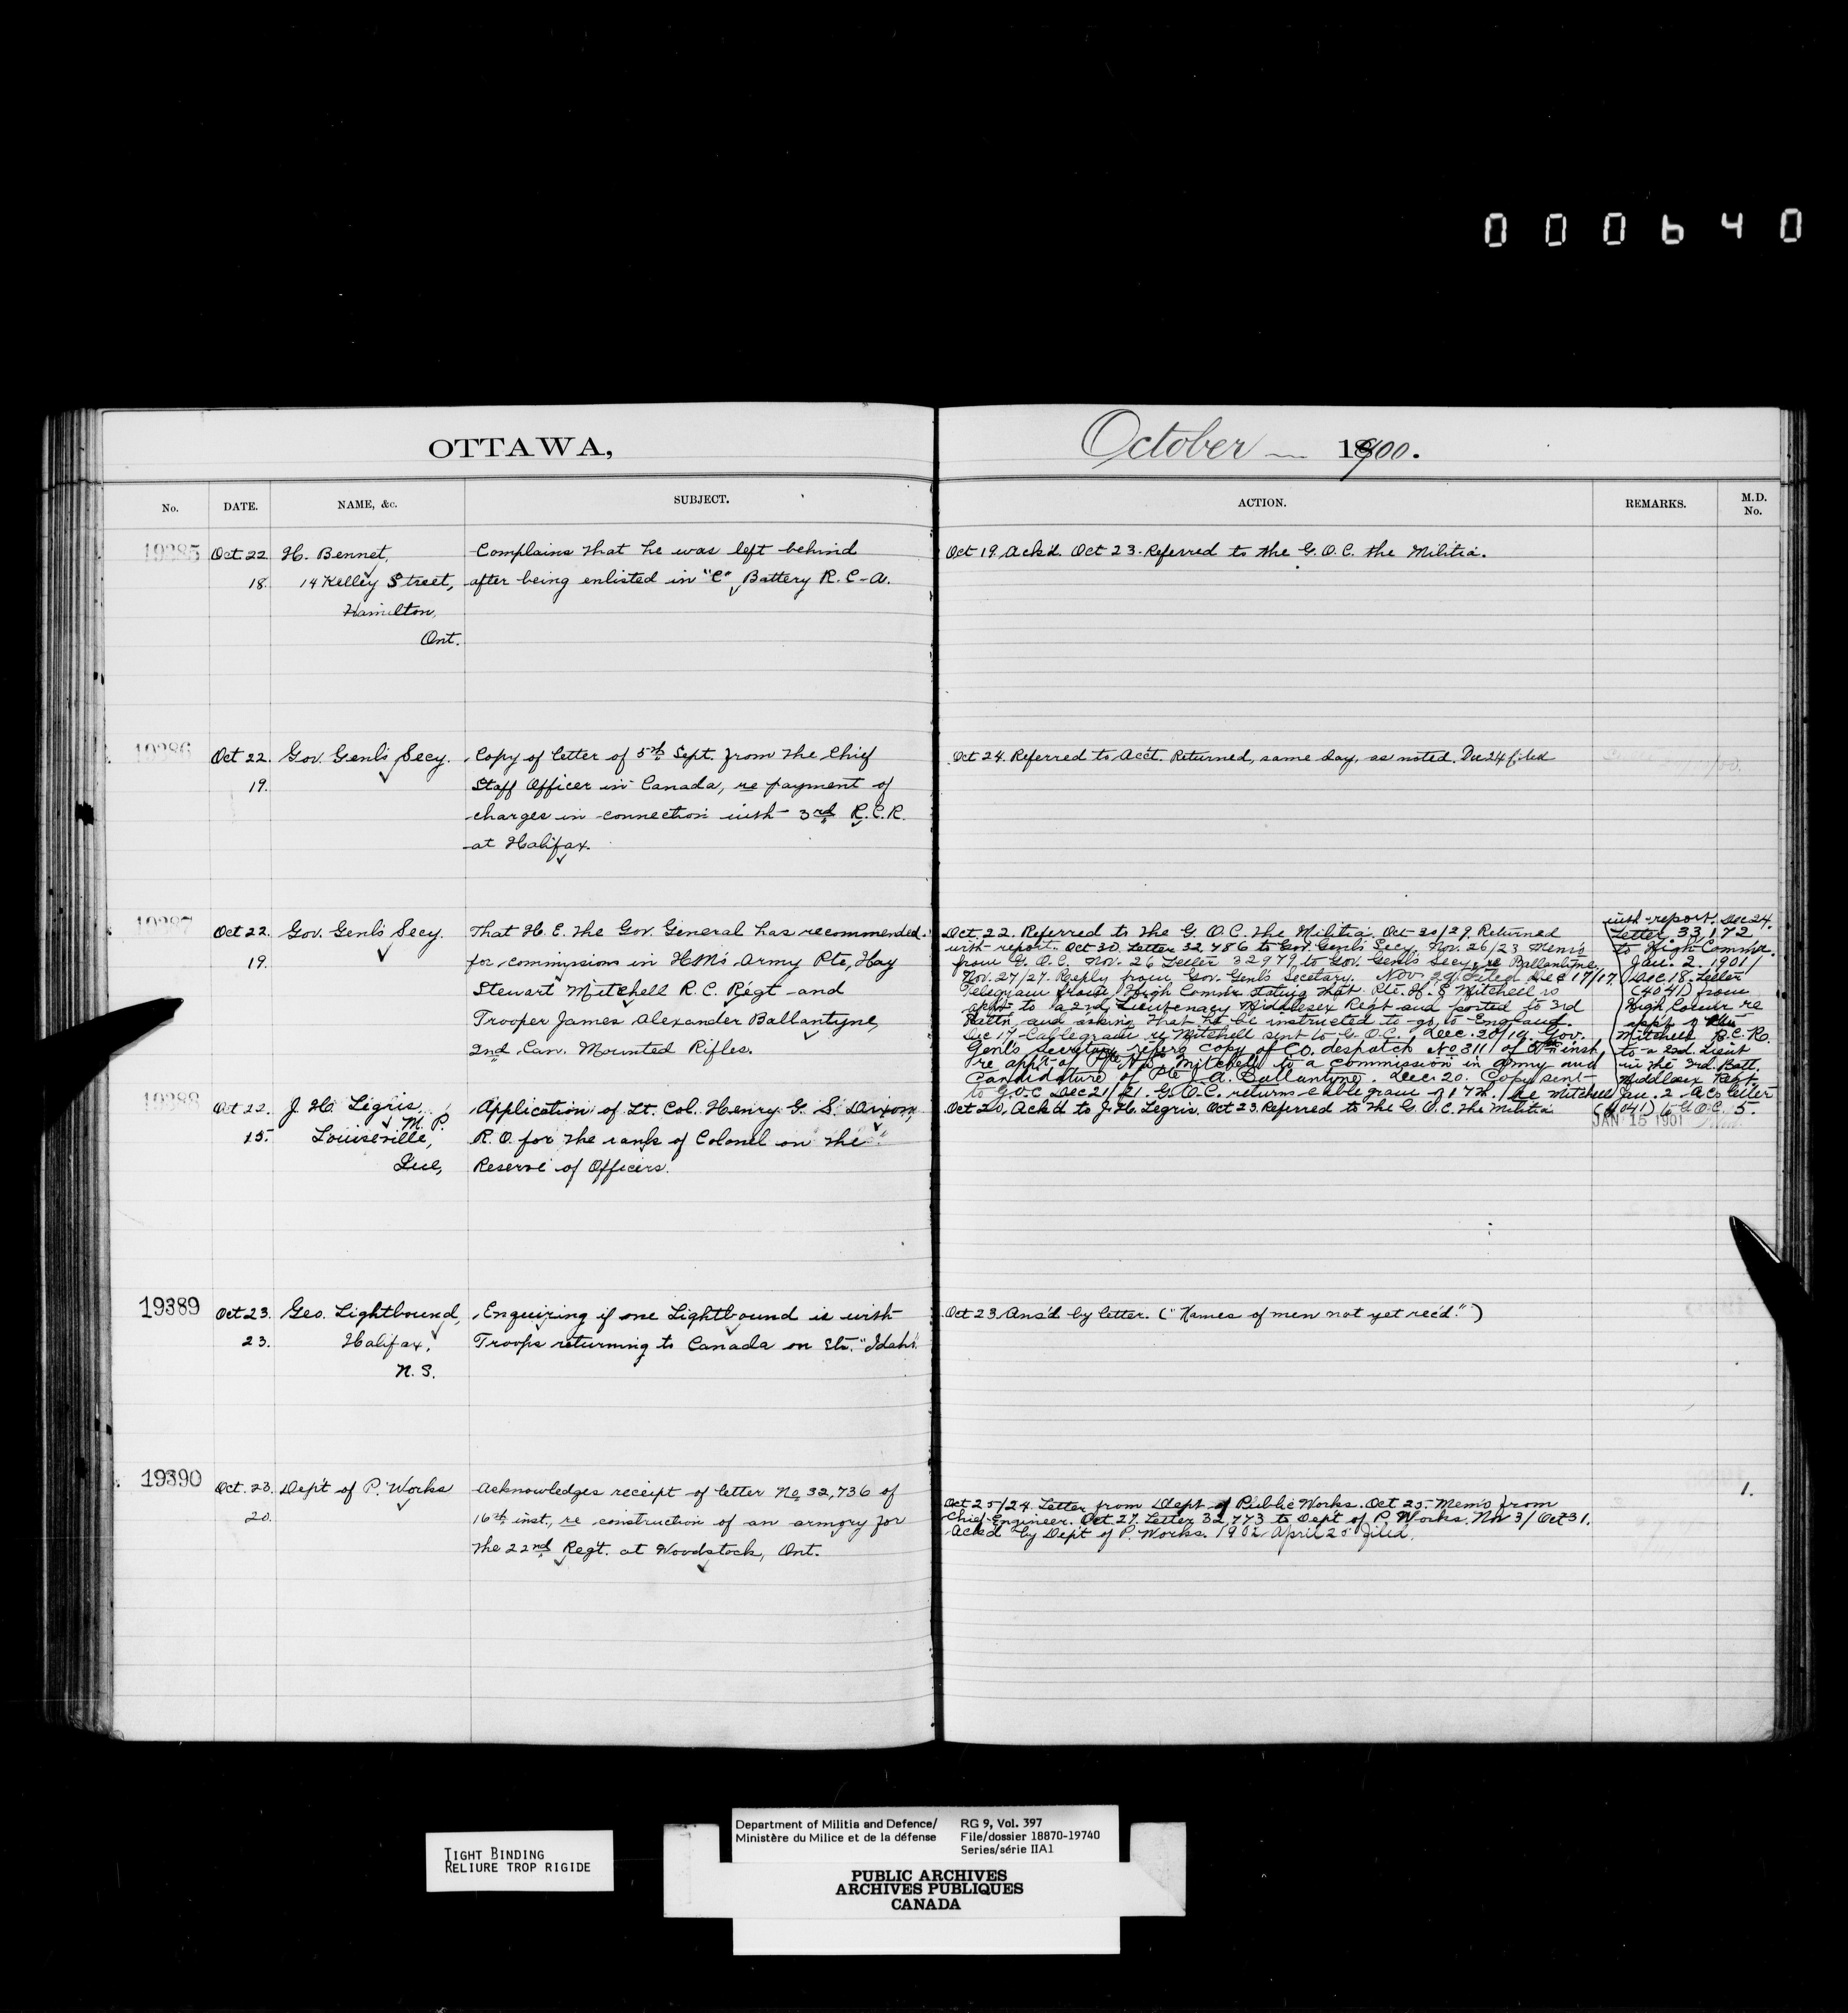 000640
OTTAWA,
October 1900.
No. DATE. NAME, &c. SUBJECT. ACTION. REMARKS. M.D. No.
19385 Oct 22 H. Bennet, Complains that he was left behind Oct 19. Ack'd. Oct 23. Referred to the G.O.C. the Militia.
18. 14 Kelley Street, after being enlisted in "C" Battery R.C.A.
Hamilton,
Ont.
19386 Oct 22. Gov. Genl's Secy. Copy of letter of 5th Sept. from the Chief Oct 24. Referred to Acc't. Returned, same day, as noted. Dec 24 filed
19. Staff Officer in Canada, re payment of
charges in connection with 3rd R.C.R.
at Halifax.
19387 Oct 22. Gov. Genl's Secy. That H.E. the Gov. General has recommended
19. for commissions in HM's Army Pte, Hay
Stewart Mitchell R.C. Regt and
Trooper James Alexander Ballantyne,
2nd Can. Mounted Rifles.
Oct. 22. Referred to the G.O.C. the Militia. Oct 30/29. Returned
with report. Oct 30. Letter 32786 to Gov. Genl's Secy. Nov. 26/23 Memo
from G.O.C. Nov. 26 Letter 32979 to Gov. Genl's Secy, re Ballantyne,
Nov. 27/27. Reply from Gov. Genl's Secretary. Nov. 29 Filed Dec 17/17.
Telegram from High Commr stating that Pte. H. S Mitchell is
app'd to a 2nd Lieutenancy Middlesex Regt and posted to 3rd
Battn and asking that he be instructed to go to England.
Dec 17 Cablegram re Mitchell sent to G.O.C. Dec. 20/19. Gov.
Genl's Secretary refers copy of Co. despatch No 311 of inst,
re app't of Pte H.S. Mitchell to a Commission in Army and
Candidature of Pte J. A. Ballantyne. Dec. 20. Copy sent
to G.O.C Dec 21/21. G.O.C. returns cablegram of 17th. re Mitchell
with report. Dec 24.
Letter 33,172
to High Commr.
Jan. 2. 1901/
Dec. 18. Letter
(4041) from
High Comr re
app't of Pte
Mitchell R.C.R.
to a 2nd Lieut
in the 3rd Batt.
Middlesex Regt.
Jan. 2. letter
(4041) to G.O.C. 5.
JAN 15 1901
19388 Oct 22. J. H. Legris, Application of Lt. Col. Henry G. S. Dixon, Oct 20, Ack'd to J. H. Legris. Oct 23. Referred to the G.O.C. the Militia
M.P.
15. Louiseville, R.O. for the rank of Colonel on the
Que, Reserve of Officers.
19389 Oct 23. Geo. Lightbound, Enquiring if one Lightbound is with Oct 23. Ans'd by letter. ("Names of men not yet rec'd.")
23. Halifax, Troops returning to Canada on Str. "Idaho".
N.S.
19390 Oct. 23. Dep't of P. Works Acknowledges receipt of letter No 32,736 of 1.
20. 16th inst., re construction of an armory for
the 22nd Reg't. at Woodstock, Ont.
Oct 25/24. Letter from Dept of Public Works. Oct 25. Memo from
Chief Engineer. Oct. 27. Letter 32,773 to Dept of P. Works. Nov 3/Oct 31.
Ack'd by Dep't of P. Works. 1902 April 25 filed.
TIGHT BINDING
RELIURE TROP RIGIDE
Department of Militia and Defence/
Ministère du Milice et de la défense
RG 9, Vol. 397
File/dossier 18870-19740
Series/série IIA1
PUBLIC ARCHIVES
ARCHIVES PUBLIQUES
CANADA